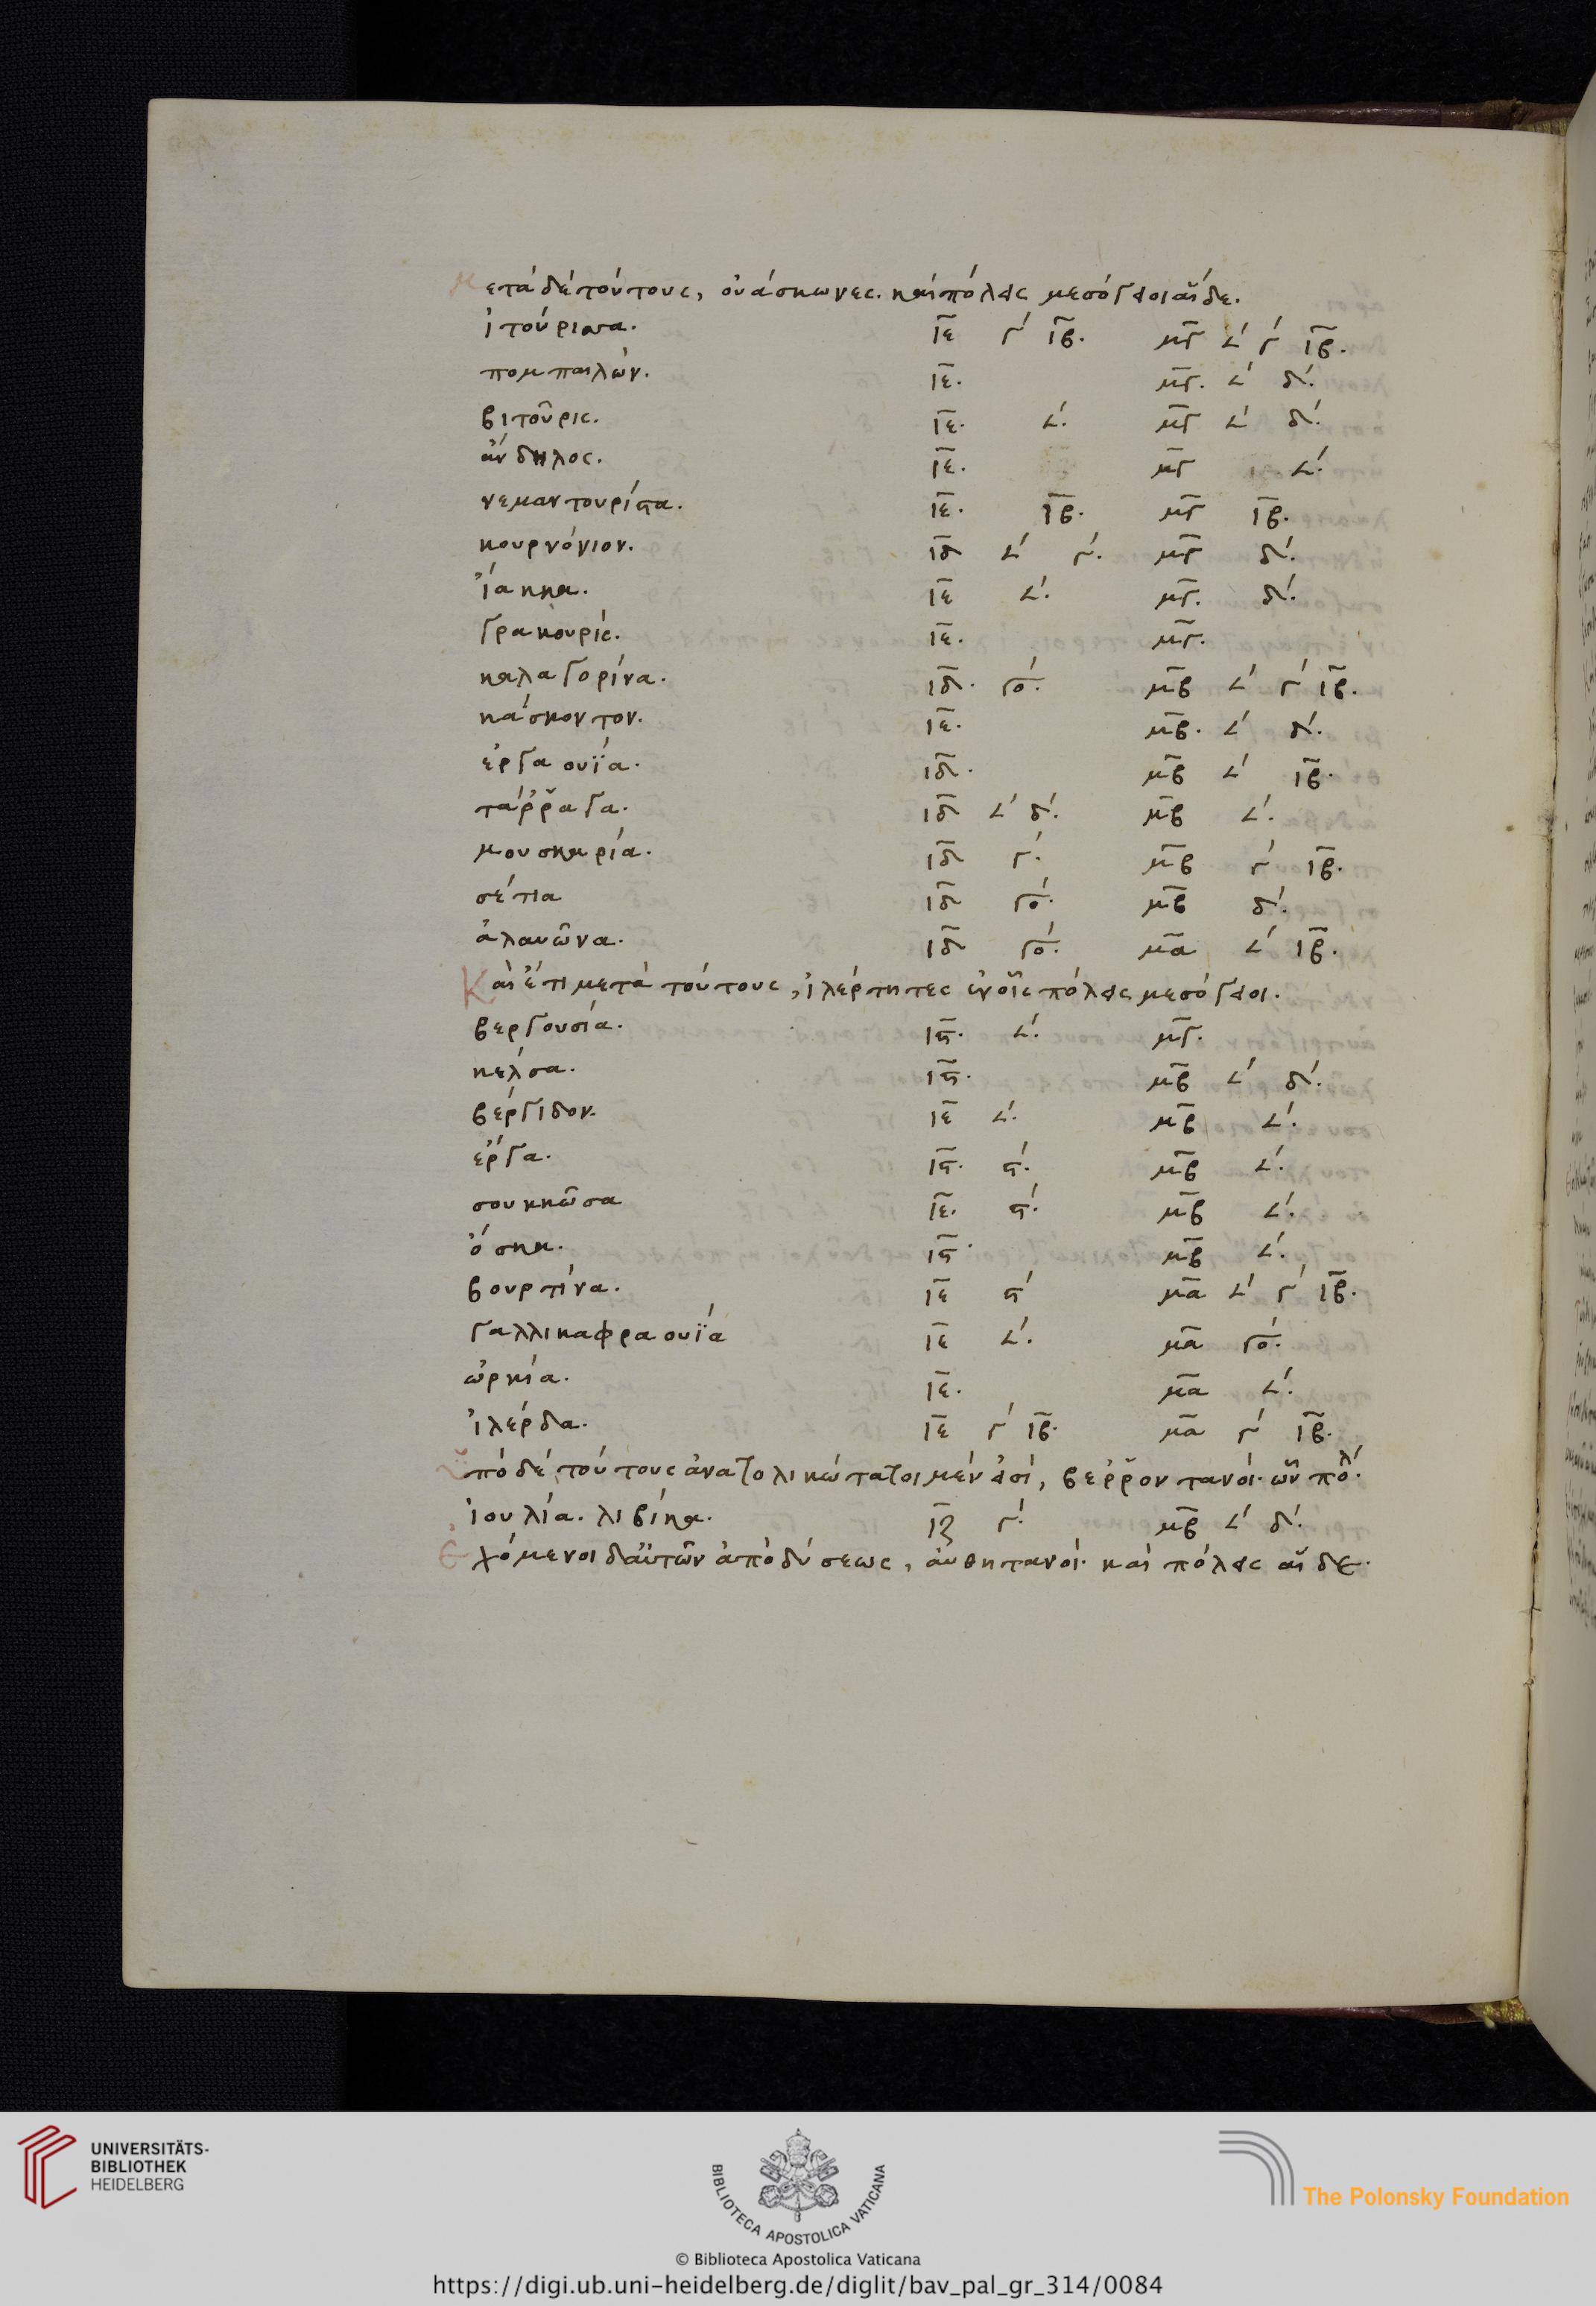 μετά δέ τούτους, ουάσκωνες. καί πόλεις μεσόγειοι αἵδε.
ἰτούρισσα. ιε γ´ ιβ. μγ ∠´ γ´ ιβ.
πομπαιλών. ιε. μγ. ∠´ δ´.
βιτοῦρις. ιε. ∠´. μγ ∠´ δ´.
ἄνδηλος. ιε. μγ ∠´.
νεμαντουρίστα. ιε. ιβ. μγ ιβ.
κουρνόνιον. ιδ ∠´ γ´. μγ δ´.
ἴακκα. ιε ∠´. μγ. δ´.
γρακουρίς. ιε. μγ.
καλαγορίνα. ιδ. γο´. μβ ∠´ γ´ ιβ.
κάσκοντον. ιε. μβ. ∠´ δ´.
ἐργαουΐα. ιδ. μβ ∠´ ιβ.
τάῤῥαγα. ιδ ∠´ δ´. μβ ∠´.
μουσκαρία. ιδ γ´. μβ γ´ ιβ.
σέτια ιδ γο´. μβ δ´.
ἀλαυῶνα. ιδ γο´. μα ∠´ ιβ.
Καὶ ἔτι μετὰ τούτους, ἰλέρτητες ἐν οἷς πόλεις μεσόγειοι.
βεργουσία. ις. ∠´. μγ.
κέλσα. ις. μβ ∠´ δ´.
βέργιδον. ιε ∠´. μβ ∠´.
ἔργα. ις. ς´. μβ ∠´.
σουκκῶσα ιε. ς´. μβ ∠´.
ὄσκα. ις. μβ ∠´.
βουρτίνα. ιε ς´ μα ∠´ γ´ ιβ.
γαλλικαφραουΐα ιε ∠´. μα γο´.
ὠρκία. ιε. μα ∠´.
ἰλέρδα. ιε γ´ ιβ. μα γ´ ιβ.
ὑπό δέ τούτους ἀνατολικώτατοι μέν εἰσί, βεῤῥοντανοί. ὧν πόλ.
ἰουλία. λιβίκα. ιζ γ´. μβ ∠´ δ´.
ἐχόμενοι δ᾽ αὐτῶν ἀπὸ δύσεως, αὐθητανοί. καί πόλεις αἵδε.
UNIVERSITÄTS-
BIBLIOTHEK
HEIDELBERG
BIBLIOTECA APOSTOLICA VATICANA
The Polonsky Foundation
© Biblioteca Apostolica Vaticana
https://digi.ub.uni-heidelberg.de/diglit/bav_pal_gr_314/0084